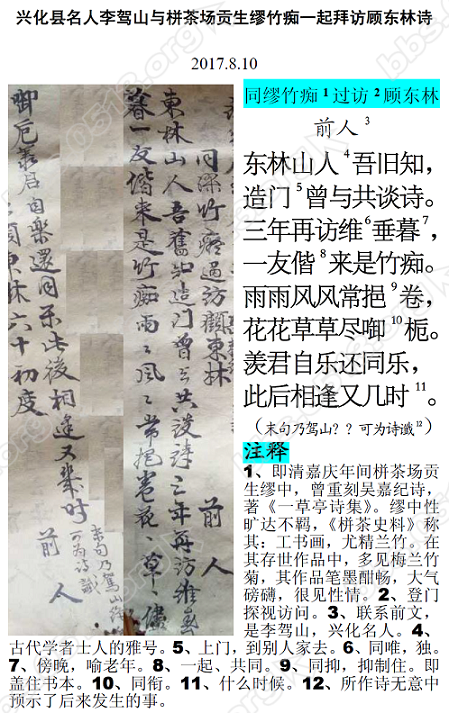 兴化县名人李驾山与栟茶场贡生缪竹痴一起拜访顾东林诗
2017.8.10
同缪竹痴过访顾东林
前人
东林山人吾旧知造门曾与共谈诗三年再访维垂
暮一友偕来是竹痴雨雨风风常挹卷花花草草尽
啣卮羡君自乐还同乐此后相逢又几时
末句乃驾山
可为诗谶
前人
顾东林六十初度
同缪竹痴 1 过访 2 顾东林
前人 3
东林山人 4 吾旧知，
造门 5 曾与共谈诗。
三年再访维6垂暮7，
一友偕 8 来是竹痴。
雨雨风风常挹 9 卷，
花花草草尽啣 10 栀。
羡君自乐还同乐，
此后相逢又几时 11。
（末句乃驾山？？可为诗谶12）
注释
1、即清嘉庆年间栟茶场贡
生缪中，曾重刻吴嘉纪诗，
著《一草亭诗集》。缪中性
旷达不羁，《栟茶史料》称
其：工书画，尤精兰竹。在
其存世作品中，多见梅兰竹
菊，其作品笔墨酣畅，大气
磅礴，很见性情。2、登门
探视访问。3、联系前文，
是李驾山，兴化名人。4、
古代学者士人的雅号。5、上门，到别人家去。6、同唯，独。
7、傍晚，喻老年。8、一起、共同。9、同抑，抑制住。即
盖住书本。10、同衔。11、什么时候。12、所作诗无意中
预示了后来发生的事。